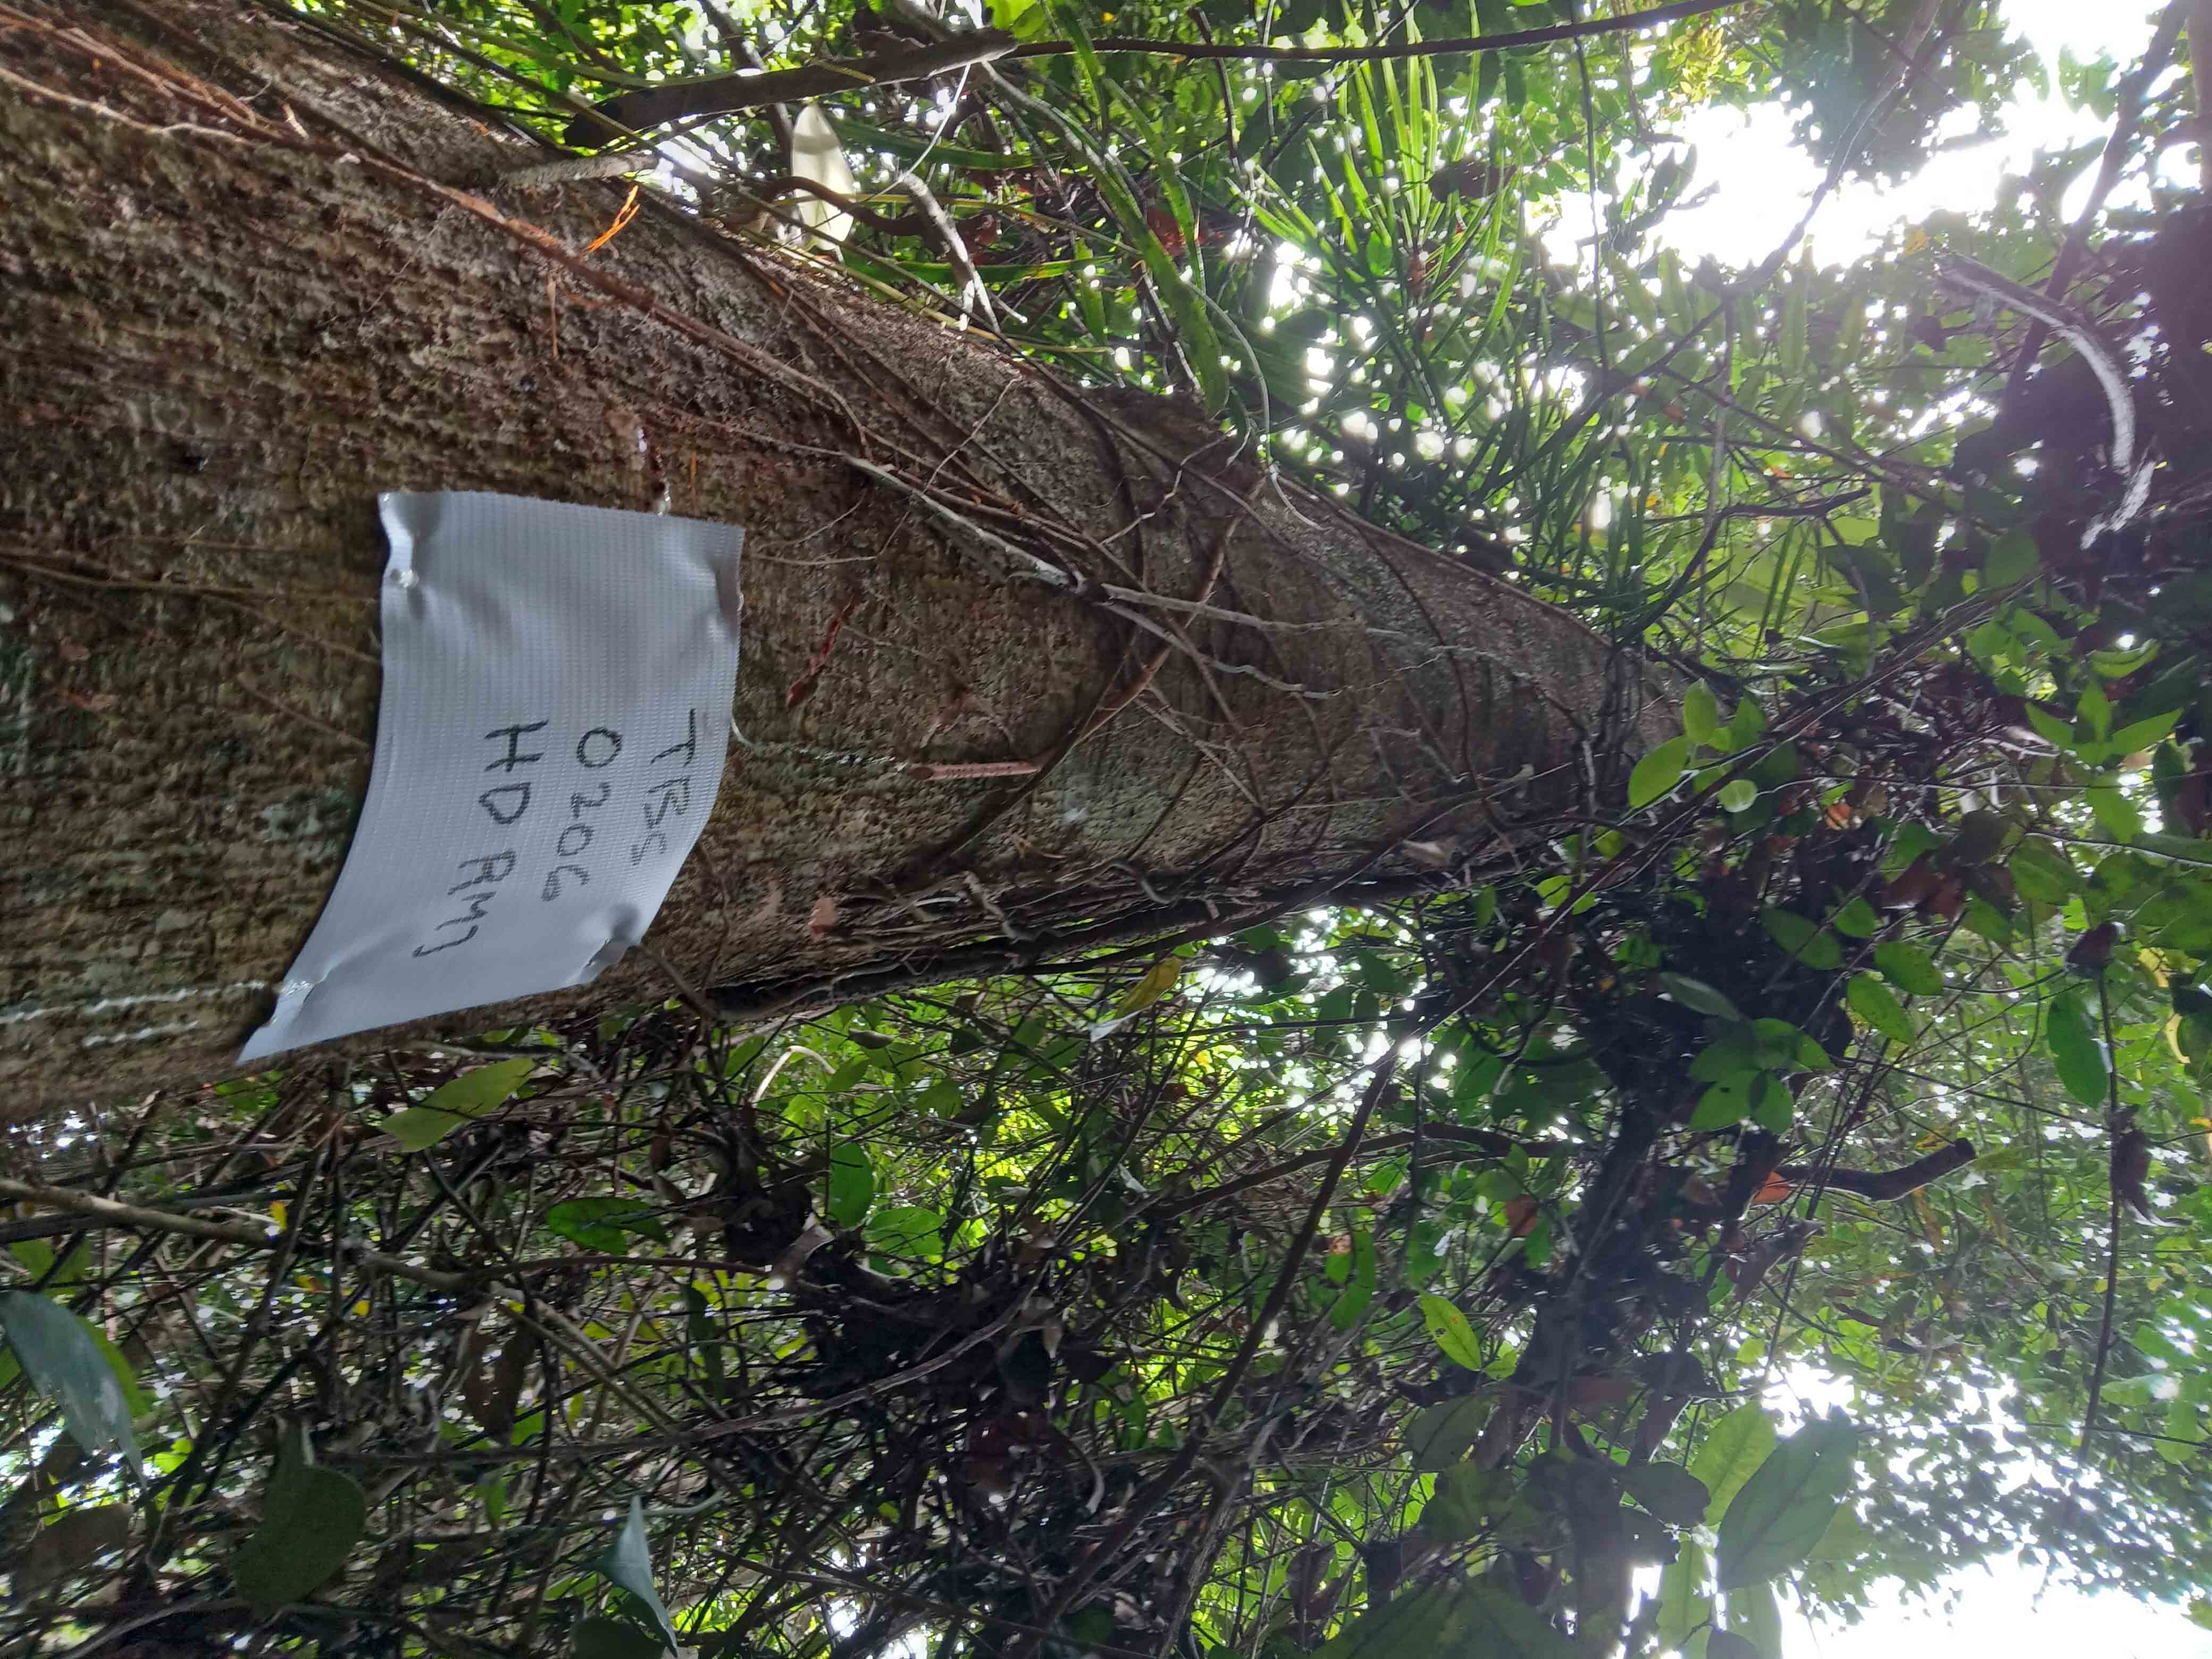 TBS
0206
HD AM7